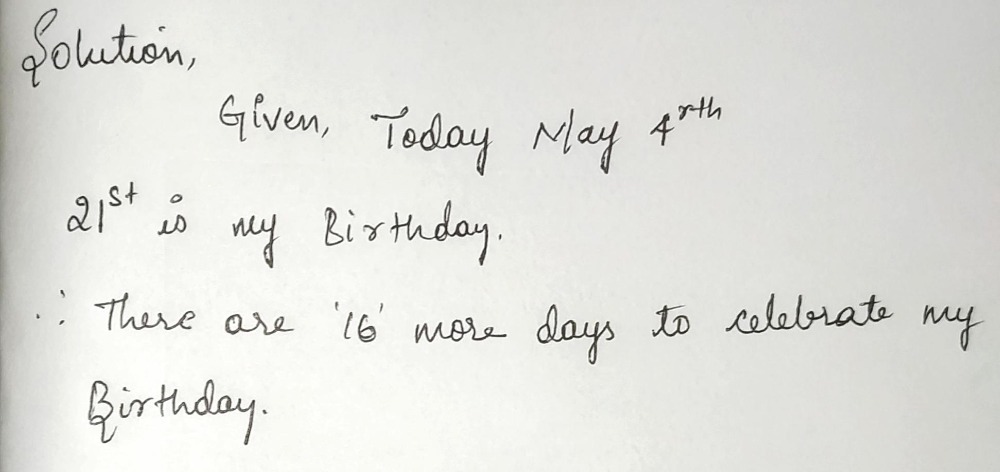 Solution,
Given, Today May 4rth
21st is my Birthday.
∴ There are '16' more days to celebrate my
Birthday.